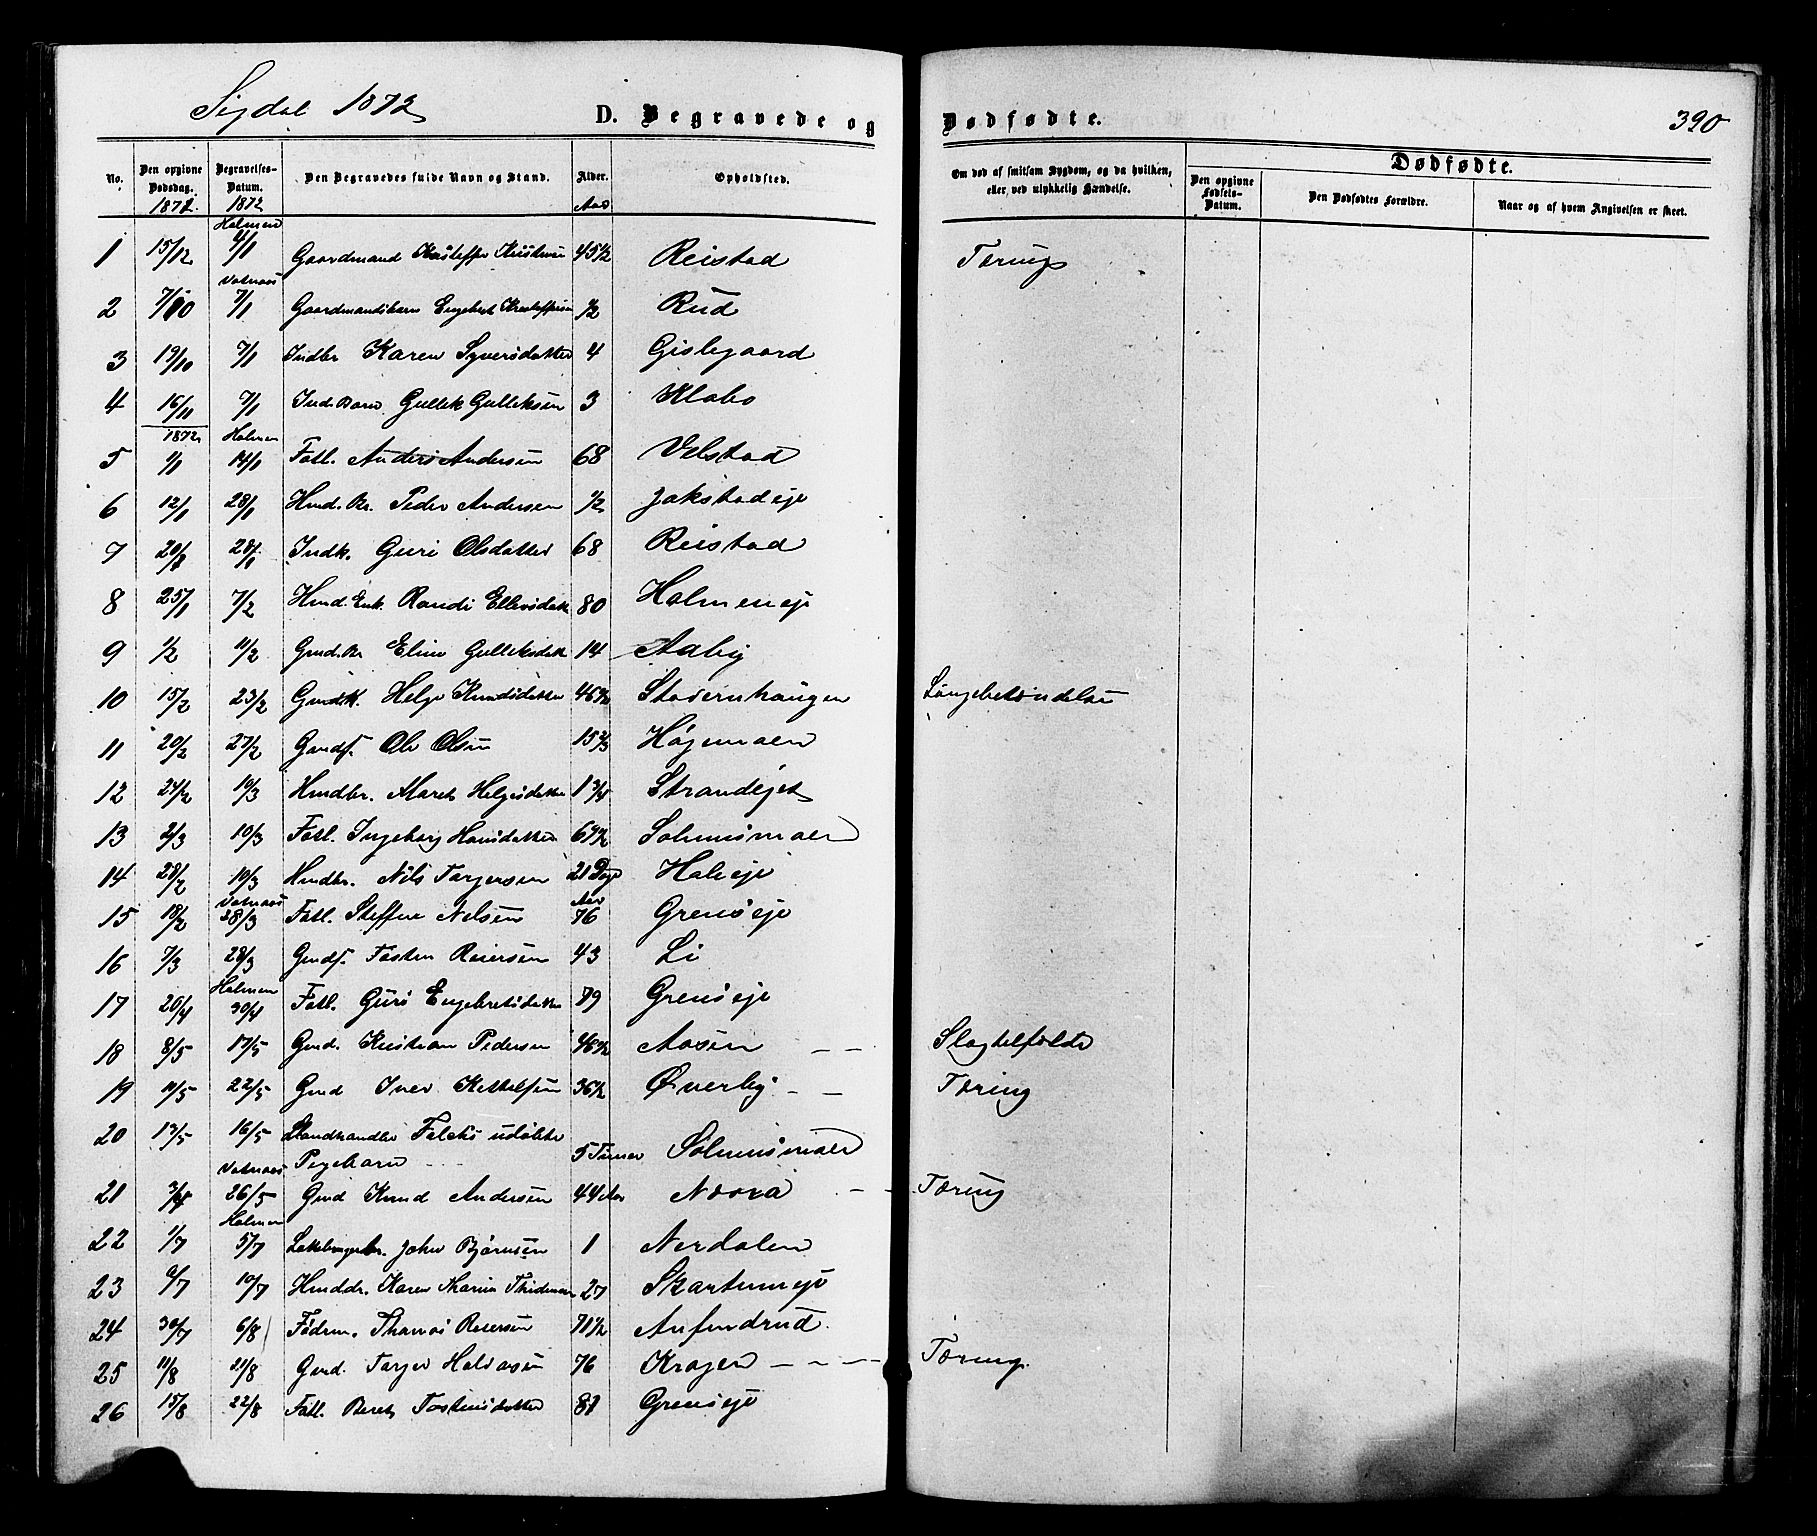 Sigdal 1872
D. Begravede og
Dødfødte.
390
No.
Den opgivne Dødsdag.
1871.
Begravelses-Datum.
1872
Den Begravedes fulde Navn og Stand.
Alder.
Aar
Opholdsted.
Om død af smitsom Sygdom, og da hvilken, eller ved ulykkelig Hændelse.
Dødfødte.
Den opgivne Fødsels-Datum.
Den Dødfødtes Forældre.
Naar og af hvem Angivelsen er skeet.
Holmen
1 15/12 4/1 Gaardmand 45 1/2 Reistad Tæring
Vatnaas
2 7/10 7/1 Gaardmandsbarn Engebret 1/2 Rud
3 19/10 7/1 Indbr Karen Syversdatter 4 Gislegaard
4 16/11 7/1 Ind. Barn Gullik Gulliksen 3
1872 Holmen
5 1/1 14/1 Fatl. Anders Andersen 68 Velstad
6 12/1 28/1 Hmd. Br. Peder Andersen 1/2 Jokstadeje
7 28/1 Indk. Guri Olsdatter 68 Reistad
8 25/1 7/2 Hmd. Enk. Randi Ellevsdatt 80 Holmeneje
9 1/2 11/2 Gmd. Br Eline Gulliksdatt 14 Aaby
10 15/2 23/2 Gmdk. Helge Knudsdatter 46 1/2 Stavernhaugen Lungebetændelse
11 20/2 27/2 Gmdf. Ole Olsen 15 2/3 Høgemoen
12 24/2 10/3 Hmdbr. Maret Helgesdatter 1 3/4 Strandejet
13 2/3 10/3 Fatl. Ingeborg Hansdatter 69 1/2
14 10/3 Hmdbr. Nils Torgersen 21 Dage
Vatnaas Aar
15 18/2 28/3 Fatl. Steffen Nelsen 76 Grenseje
16 7/3 28/3 Gmdf. Tosten Reiersen 43 Li
Holmen
17 20/4 30/4 Fatl. Guri Engebretsdatter 79 Grenseje
18 8/5 17/5 Gmd. Kristian Pedersen 46 1/2 Aasen - - Slagtelfælde
19 11/5 22/5 Gmd Iver Kittelsen 36 1/2 Øverby - - Tæring
20 13/5 16/5 Landhandler Falcks udøbte
Pigebarn - - - 5 Timer
Vatnaas
21 26/5 Gmd Knud Andersen 44 Aar - - Tæring
Holmen
22 1/7 5/7 John Bjørnsen 1 Nerdalen
23 6/7 10/7 Hmddr. Karen 27 Skartumeje
24 30/7 6/8 Fødrm. Thomas Reiersen 71 1/2 Anfindrud.
25 11/8 21/8 Gmd. Torger Halvorsen 76 - - - - Tæring
26 15/8 22/8 Fatl. Beret Tostensdatter 81 Grenseje